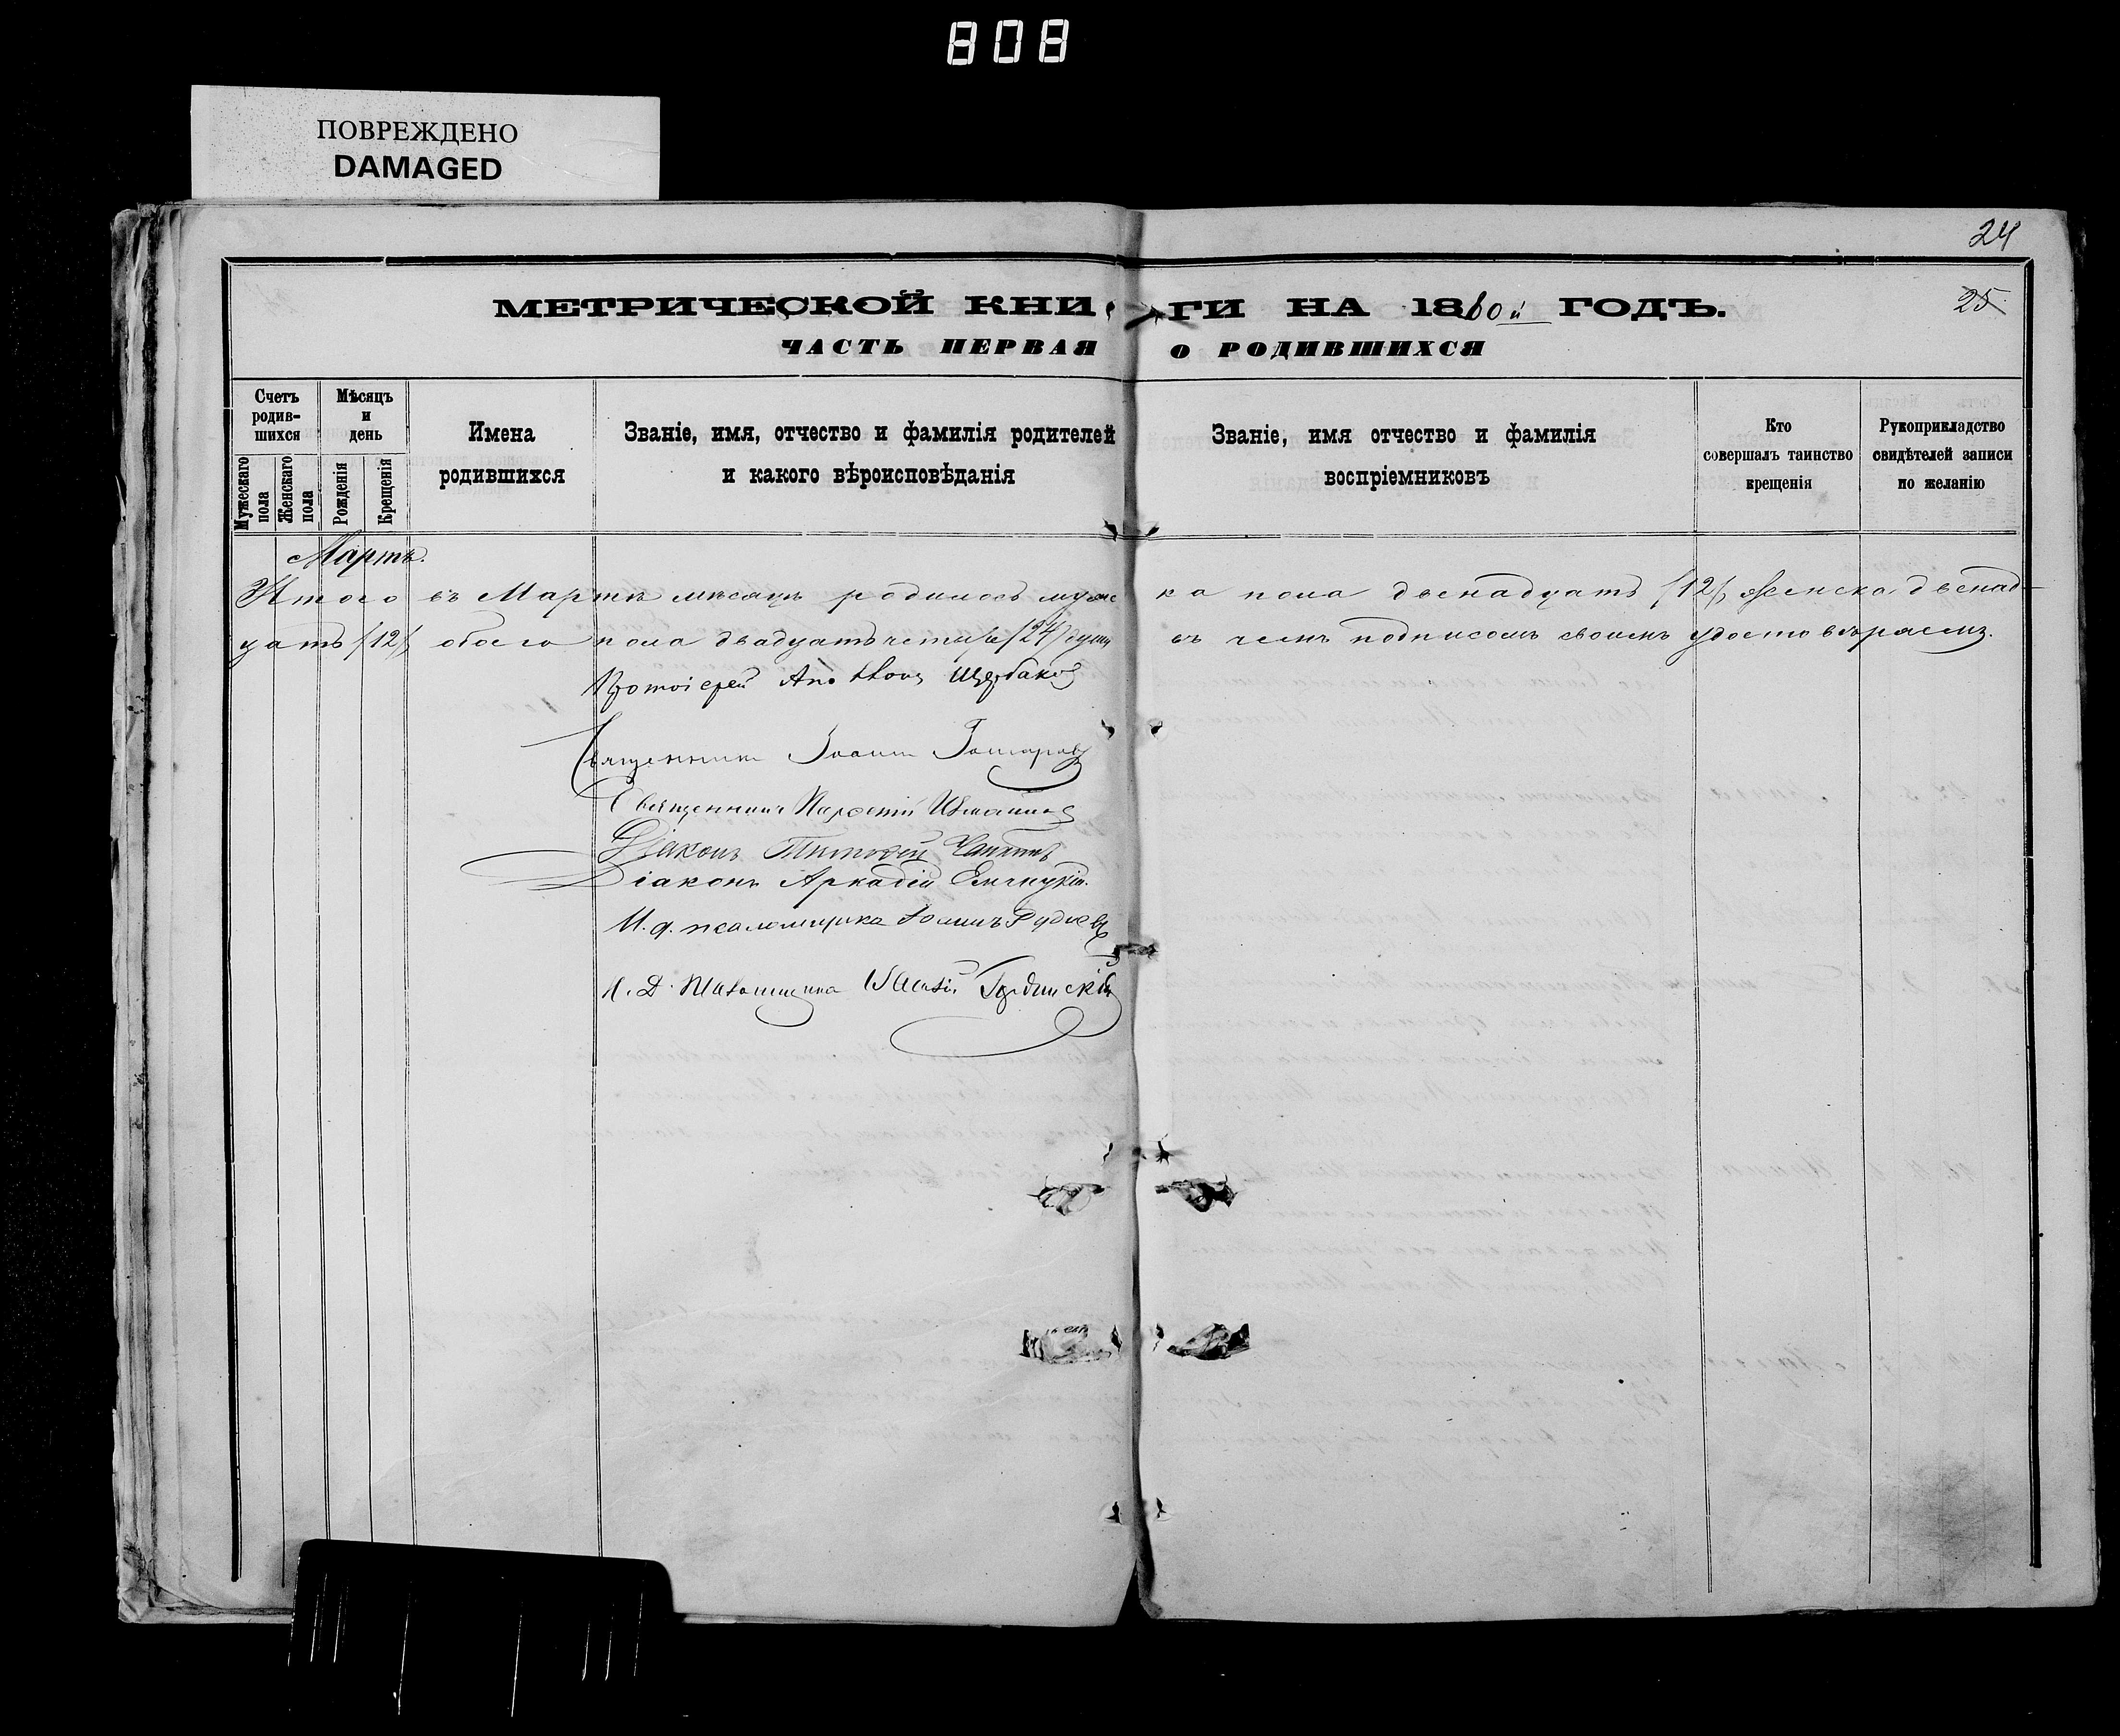 808
ПОВРЕЖДЕНО
DAMAGED
24
МЕТРИЧЕСКОЙ КНИГИ НА 1880й ГОДЪ.
25
ЧАСТЬ ПЕРВАЯ О РОДИВШИХСЯ
Счетъ родив-шихся
Мужескаго пола
Женскаго пола
Мѣсяцъ и день
Рожденія
Крещенія
Имена родившихся
Званіе, имя, отчество и фамилія родителей
и какого вѣроисповѣданія
Званіе, имя отчество и фамилія
воспріемниковъ
Кто
совершалъ таинство
крещенія
Рукоприкладство
свидѣтелей записи
по желанію
Мартъ.
Итого въ Мартѣ мѣсяцѣ родилось мужеска пола двенадцать /12/ женска двенад-
цать /12/ обоего пола двадцать четыре /24/ душъ въ чемъ подписомъ своимъ удостовѣряемъ.
Протоіерей Щербаковъ
Священникъ Іоаннъ
Священникъ
Діаконъ Тимофей
Діаконъ Аркадій
И. д. псаломщика Іоаннъ Рудневъ
И. Д. Псаломщика